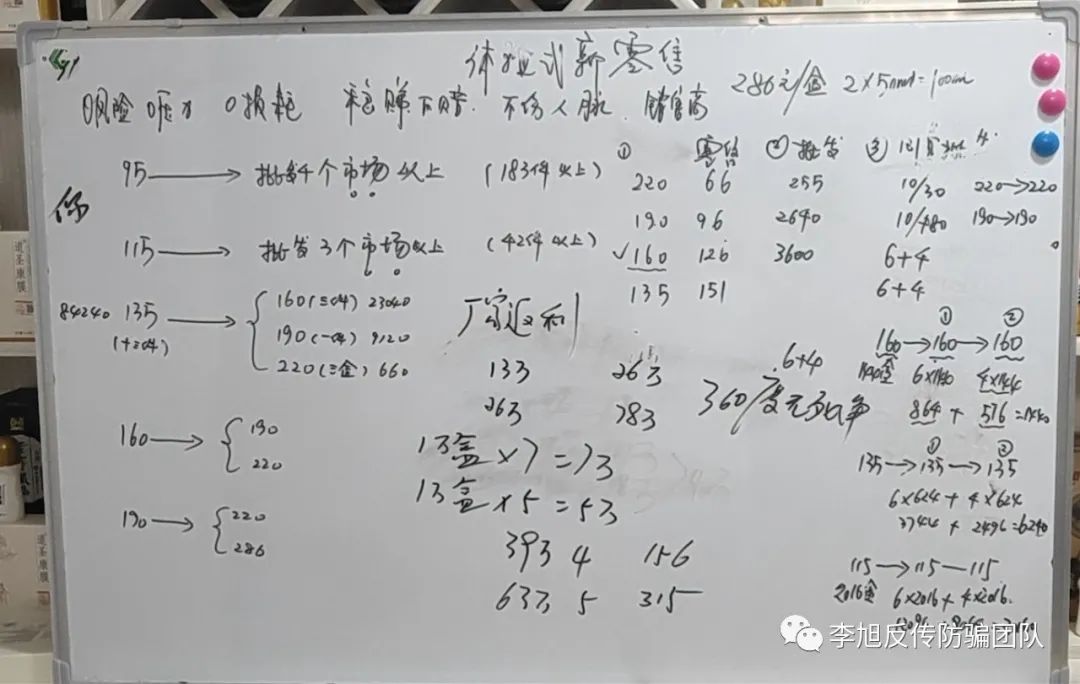 体验式新零售
286元/盒 2×5ml=10ml
0风险 0压力 0损耗 稳赚不赔 不伤人脉
95→批发4个市场以上 (183件以上)
你
115→批发3个市场以上 (42件以上)
84240 135→ 160(三件) 23040
190(一件) 9120
220(三盒) 660
160→ 190
220
190→ 220
286
① 零售 ② 批发 ③
220 66 255 10/30 220→220
190 96 2640 10/480 190→190
✓160 126 3600 6+4
135 151 6+4
厂家返利
133 263
263 383
13盒×7=73
13盒×5=53
393 4 156
633 5 315
6+4
360度无
① ②
160→160→160
6×1440 4×144
864+576=1440
① ②
135→135→135
6×624+4×624
3744+2496=6240
115→115—115
2016盒 6×2016+4×2016
李旭反传防骗团队